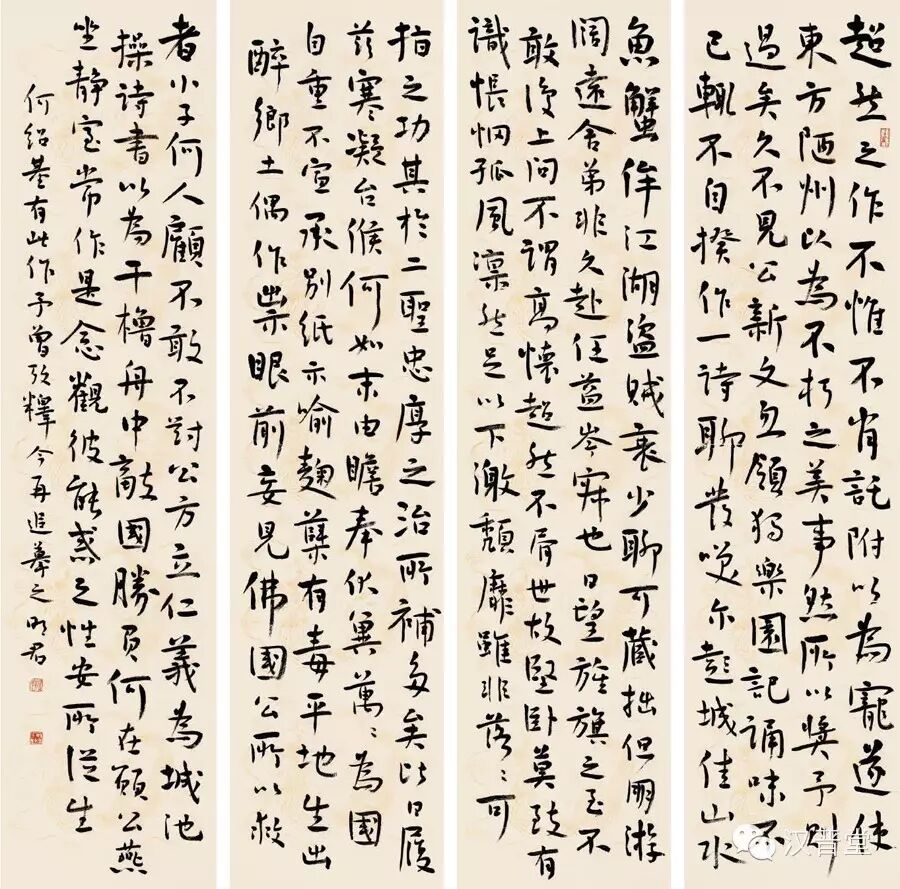 超然之作不惟不肖託附以為寵遂使
東方陋州以為不朽之美事然所以獎予則
過矣久不見公新文忽領獨樂園記誦味不
已輒不自揆作一詩聊發笑尔彭城佳山水
魚蟹侔江湖盜賊衰少聊可藏拙但朋游
闊遠舍弟非久赴任益岑寂也日望旌旗之至不
敢復上問不謂高懷超然不屑世故堅臥莫致有
識悵惘孤風凜然足以下激頹靡雖非落〻可
指之功其於二聖忠厚之治所補多矣比日履
茲寒凝台候何如末由瞻奉伏冀萬〻為國
自重不宣承別紙示喻麴糵有毒平地生出
醉鄉土偶作祟眼前妄見佛國公所以救
者小子何人顧不敢不對公方立仁義為城池
操詩書以為干櫓舟中敵國勝負何在願公燕
坐靜室常作是念觀彼能惑之性安所從生
何紹基有此作予曾攷釋今再追摹之
汉普堂